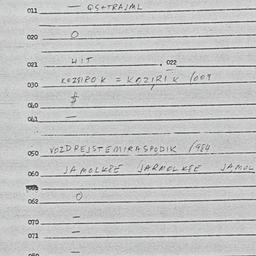 011 — QS+TRAJML
020 O
021 HIT . 022
030 KOZIROK = KOZIRIK /009
040 $
041 —
050 VOZDREJSTEMIRASPODIK /984
060 JAMOLKEE JARMOLKEE JAMOL
062 O
070 —
071 —
080 —